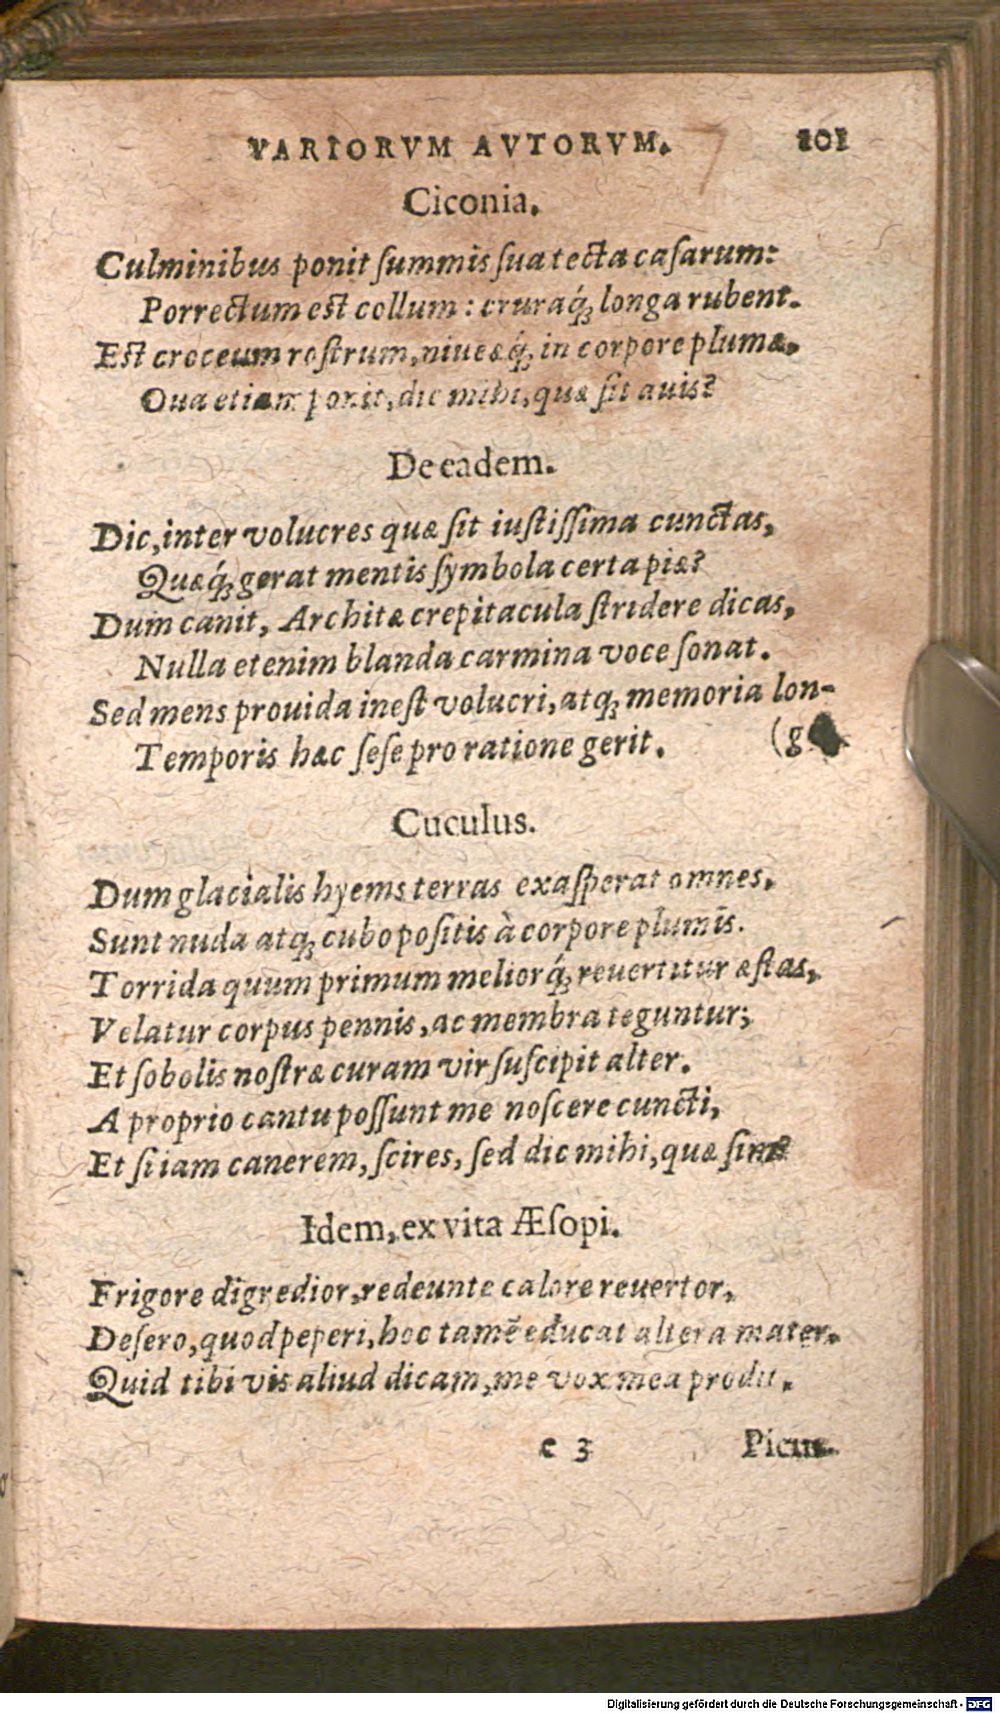 VARIORVM AVTORVM. 101
Ciconia.
Culminibus ponit ſummis ſua tecta caſarum:
Porrectum est collum: cruraq́ꝫ longa rubent.
Est croceum roſtrum, niueæq́ꝫ in corpore plumæ,
Oua etiam ponit, dic mihi, quæ ſit auis?
De eadem.
Dic, inter volucres quæ ſit iuſtiſſima cunctas,
Quæq́ꝫ gerat mentis ſymbola certa piæ?
Dum canit, Architæ crepitacula ſtridere dicas,
Nulla etenim blanda carmina voce ſonat.
Sed mens prouida ineſt volucri, atqꝫ memoria lon-
Temporis hæc ſeſe pro ratione gerit. (g
Cuculus.
Dum glacialis hyems terras exaſperat omnes,
Sunt nuda atqꝫ cubo poſitis à corpore plumis.
Torrida quum primum meliorq́ꝫ reuertitur æſtas,
Velatur corpus pennis, ac membra teguntur;
Et ſobolis noſtræ curam vir ſuſcipit alter.
A proprio cantu poſſunt me noſcere cuncti,
Et ſi iam canerem, ſcires, ſed dic mihi, quæ ſim?
Idem, ex vita Æſopi.
Frigore digredior, redeunte calore reuertor,
Deſero, quod peperi, hoc tamē educat altera mater.
Quid tibi vis aliud dicam, me vox mea prodit.
e 3 Picus.
Digitalisierung gefördert durch die Deutsche Forschungsgemeinschaft - DFG